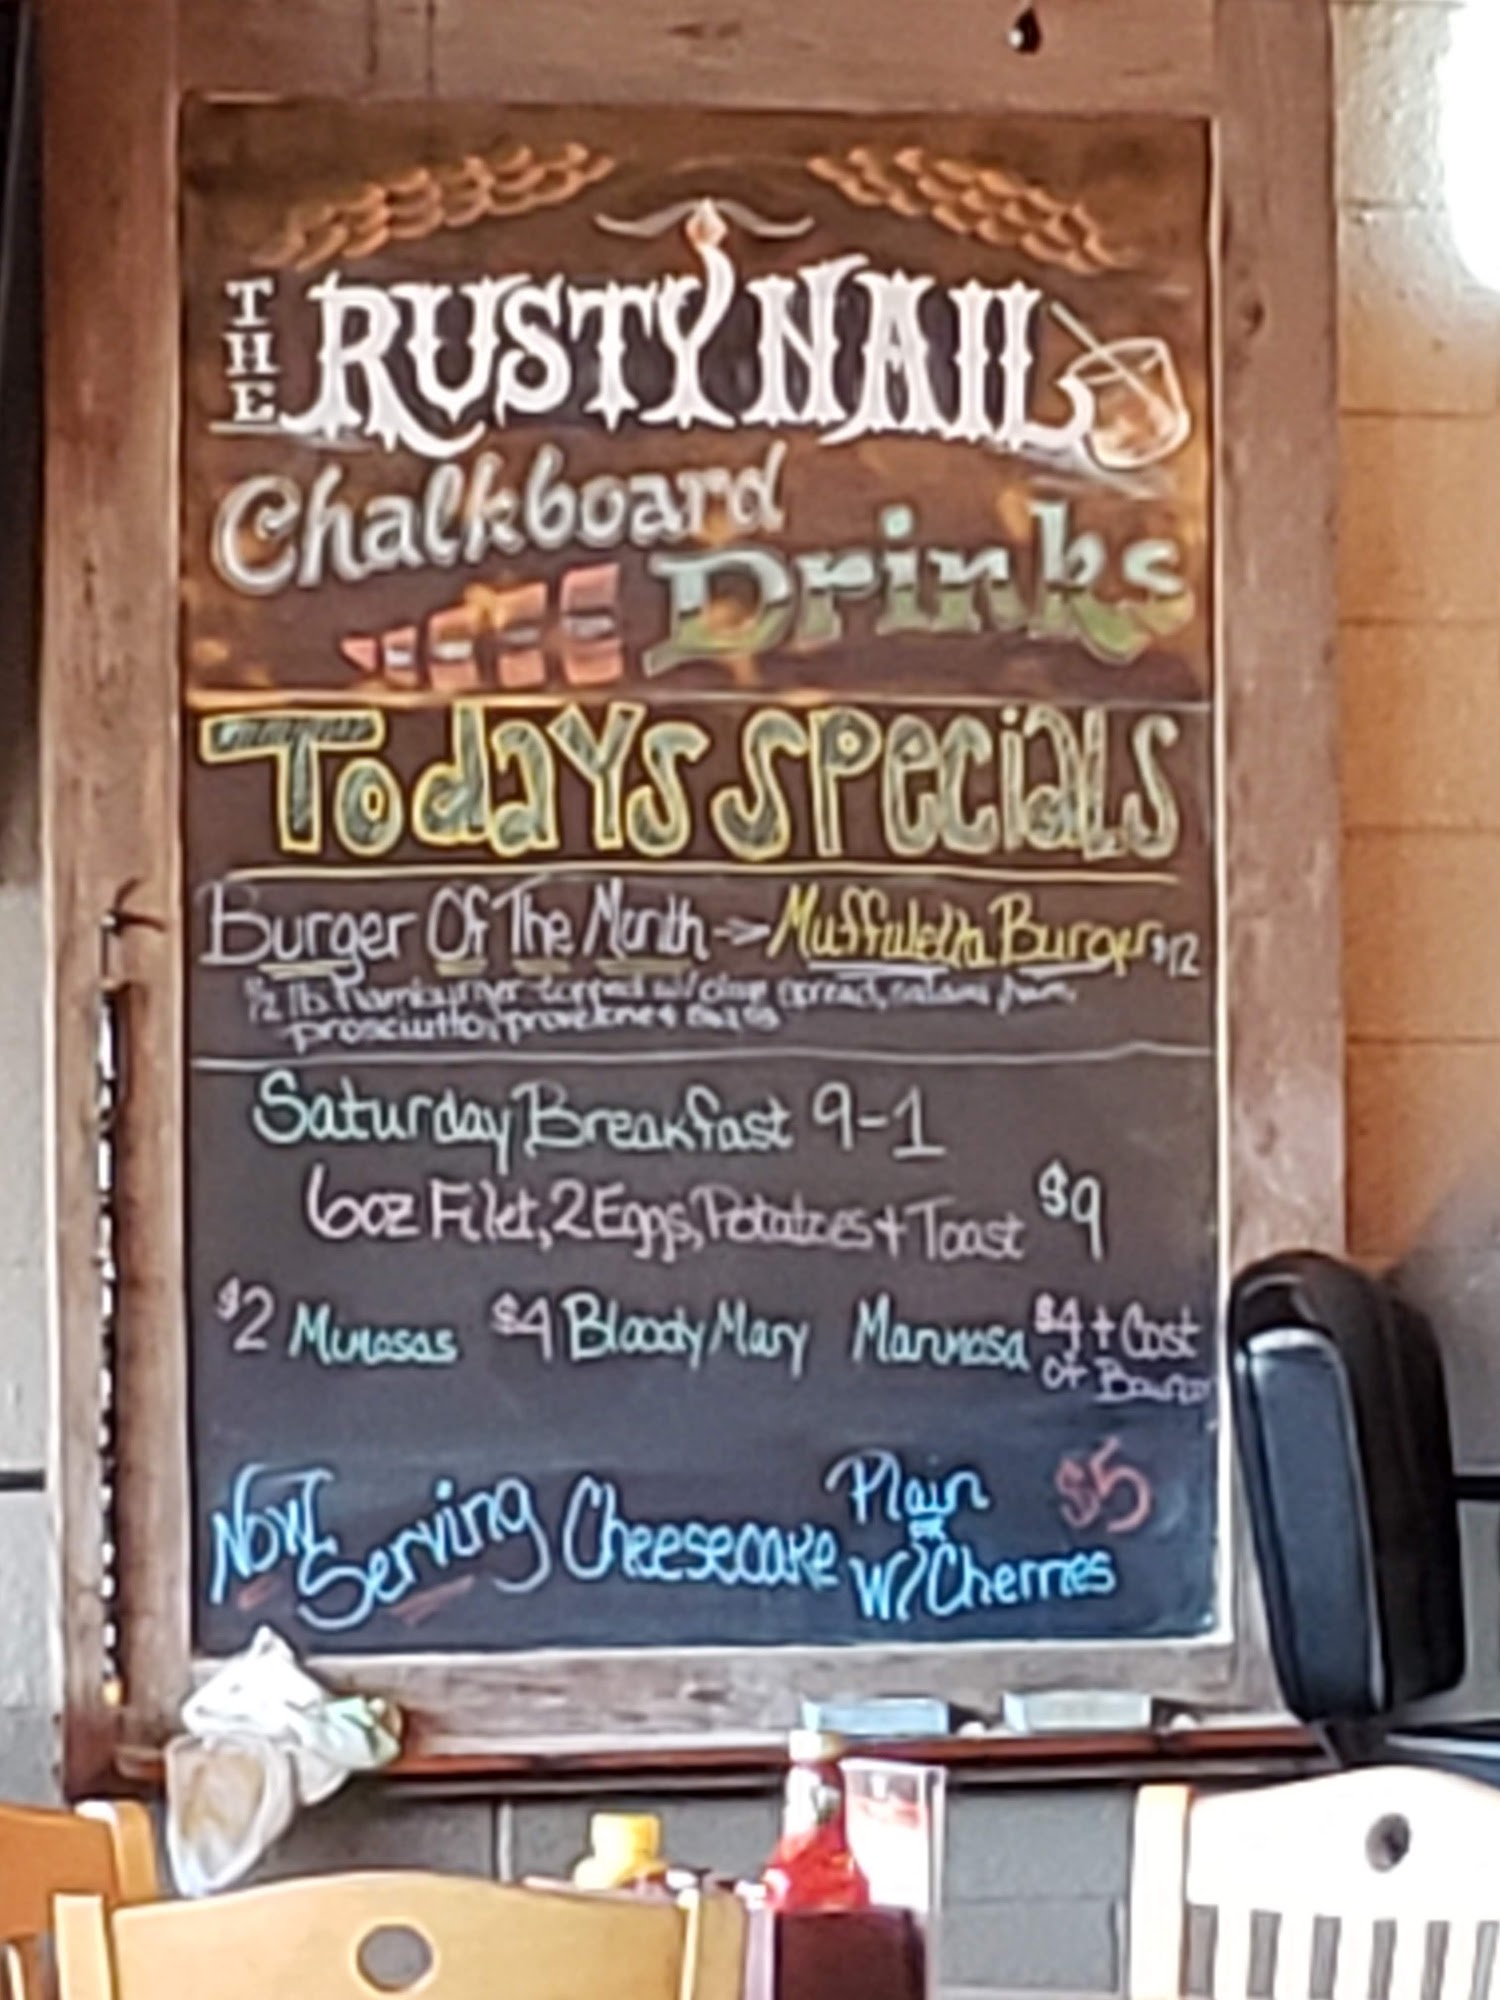 THE RUSTY NAIL
Chalkboard
Drinks
Todays Specials
Burger Of The Month -> Muffuletta Burger $12
1/2 lb hamburger topped w/ olive spread, salami, ham,
prosciutto, provolone +
Saturday Breakfast 9-1
6oz Filet, 2 Eggs, Potatoes + Toast $9
$2 Mimosas $4 Bloody Mary Manmosa $4 + Cost
of
Now Serving Cheesecake Plain $5
or
W/ Cherries